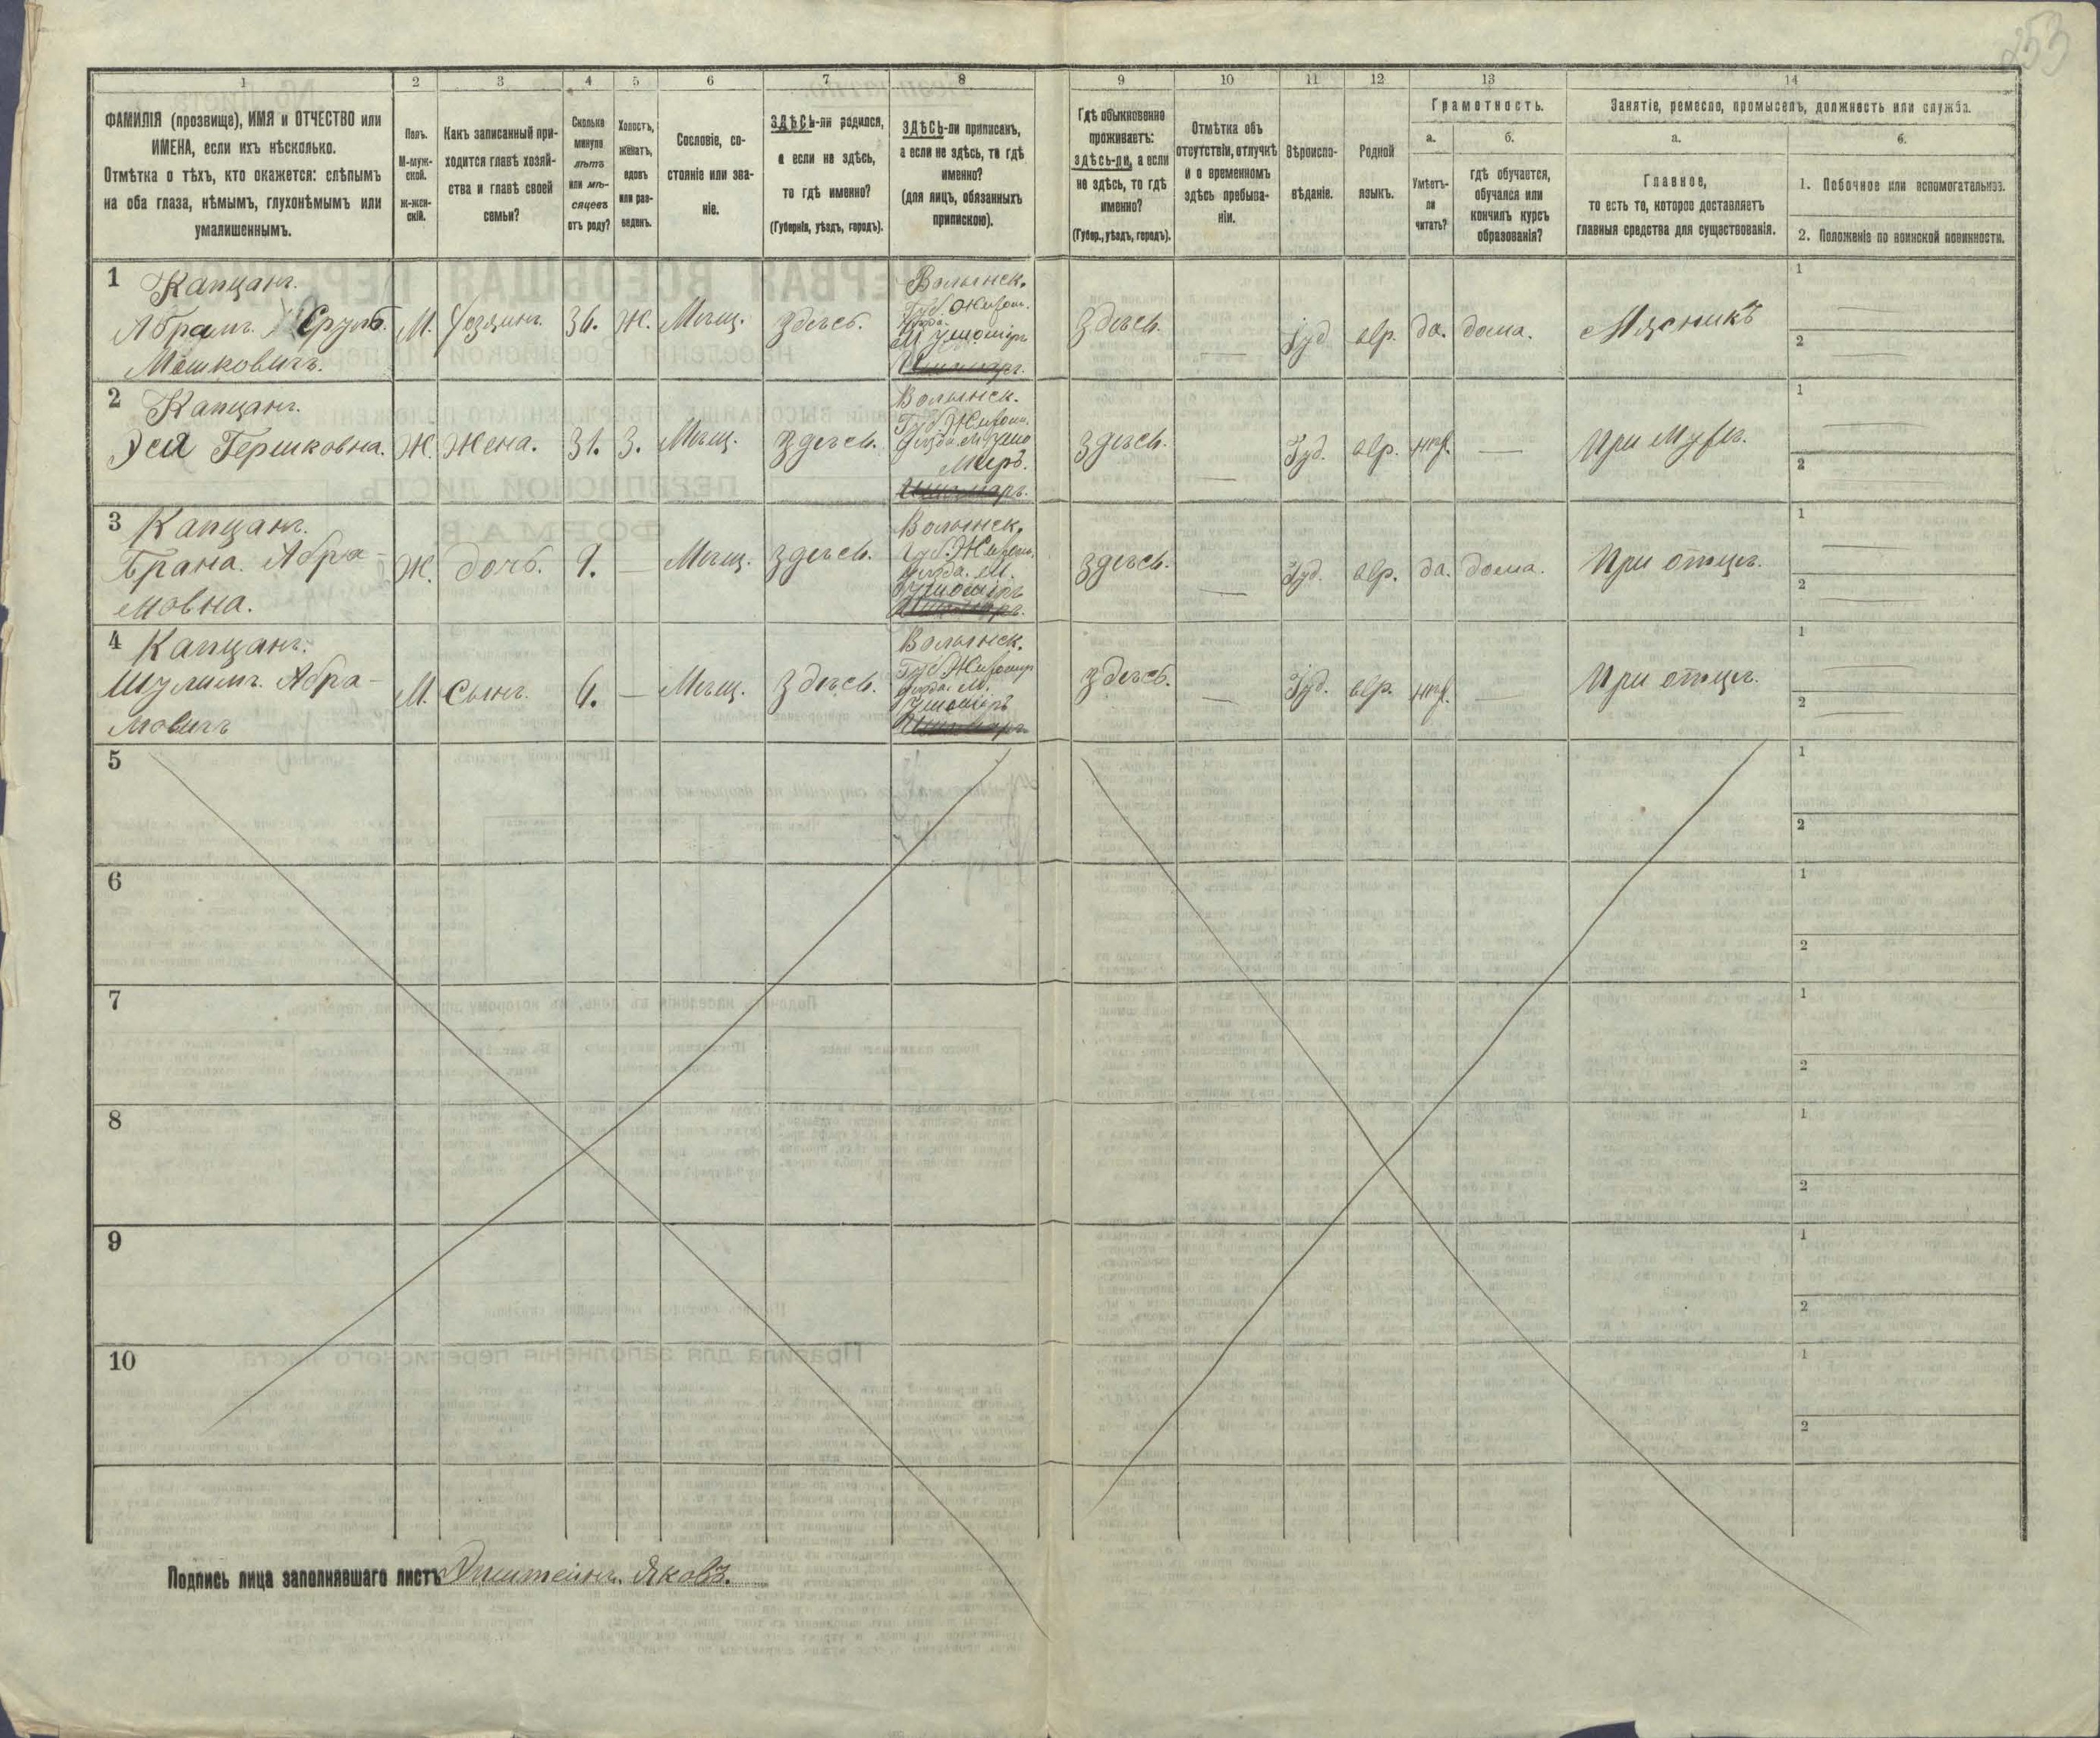 253
1
2
3
4
5
6
7
8
9
10
11
12
13
14
ФАМИЛІЯ (прозвище), ИМЯ и ОТЧЕСТВО или
ИМЕНА, если ихъ нѣсколько.
Отмѣтка о тѣхъ, кто окажется: слѣпымъ
на оба глаза, нѣмымъ, глухонѣмымъ или
умалишеннымъ.
Полъ.
М-муж-
ской.
Ж-жен-
скій.
Какъ записанный при-
ходится главѣ хозяй-
ства и главѣ своей
семьи?
Сколько
минуло
лѣтъ
или мѣ-
сяцевъ
отъ роду?
Холостъ,
женатъ,
вдовъ
или раз-
веденъ.
Сословіе, со-
стояніе или зва-
ніе.
ЗДѢСЬ-ли родился,
а если не здѣсь,
то гдѣ именно?
(Губернія, уѣздъ, городъ).
ЗДѢСЬ-ли приписанъ,
а если не здѣсь, то гдѣ
именно?
(для лицъ, обязанныхъ
припискою).
Гдѣ обыкновенно
проживаетъ:
здѣсь-ли, а если
не здѣсь, то гдѣ
именно?
(Губер., уѣздъ, городъ).
Отмѣтка объ
отсутствіи, отлучкѣ
и о временномъ
здѣсь пребыва-
ніи.
Вѣроиспо-
вѣданіе.
Родной
языкъ.
Грамотность.
а.
Умѣетъ-
ли
читать?
б.
гдѣ обучается,
обучался или
кончилъ курсъ
образованія?
Занятіе, ремесло, промыселъ, должность или служба.
а.
Главное,
то есть то, которое доставляетъ
главныя средства для существованія.
б.
1. Побочное или вспомогательное.
2. Положеніе по воинской повинности.
1 Капцанъ.
Абрамъ. Сруль.
Мошковичъ.
М. Хозяинъ. 36. Ж. Мѣщ. Здѣсь.
Волынск.
Губ. Житом.
уѣзда.
М. Ушоміръ
Здѣсь. — Іуд. евр. да. дома. Мясникъ
1
2
2 Капцанъ.
Эся Гершковна.
Ж. Жена. 31. З. Мѣщ. Здѣсь.
Волынск.
Губ. Житом.
уѣзда. М. Ушо
миръ.
Здѣсь. — Іуд. евр. нѣт. — При мужѣ.
1
2
3 Капцанъ.
Брана. Абра-
мовна.
Ж. дочь. 9. — Мѣщ. Здѣсь.
Волынск.
Губ. Житом.
уѣзда. М.
Ушоміръ
Здѣсь. — Іуд. евр. да. дома. При отцѣ.
1
2
4 Капцанъ.
Шулимъ. Абра-
мовичъ
М. Сынъ. 6. — Мѣщ. Здѣсь.
Волынск.
Губ. Житомир
уѣзда. М.
Ушоміръ
Здѣсь. — Іуд. евр. нѣт. — При отцѣ.
1
2
5
1
2
6
1
2
7
1
2
8
1
2
9
1
2
10
1
2
Подпись лица заполнявшаго листъ Эпштейнъ. Яковъ.